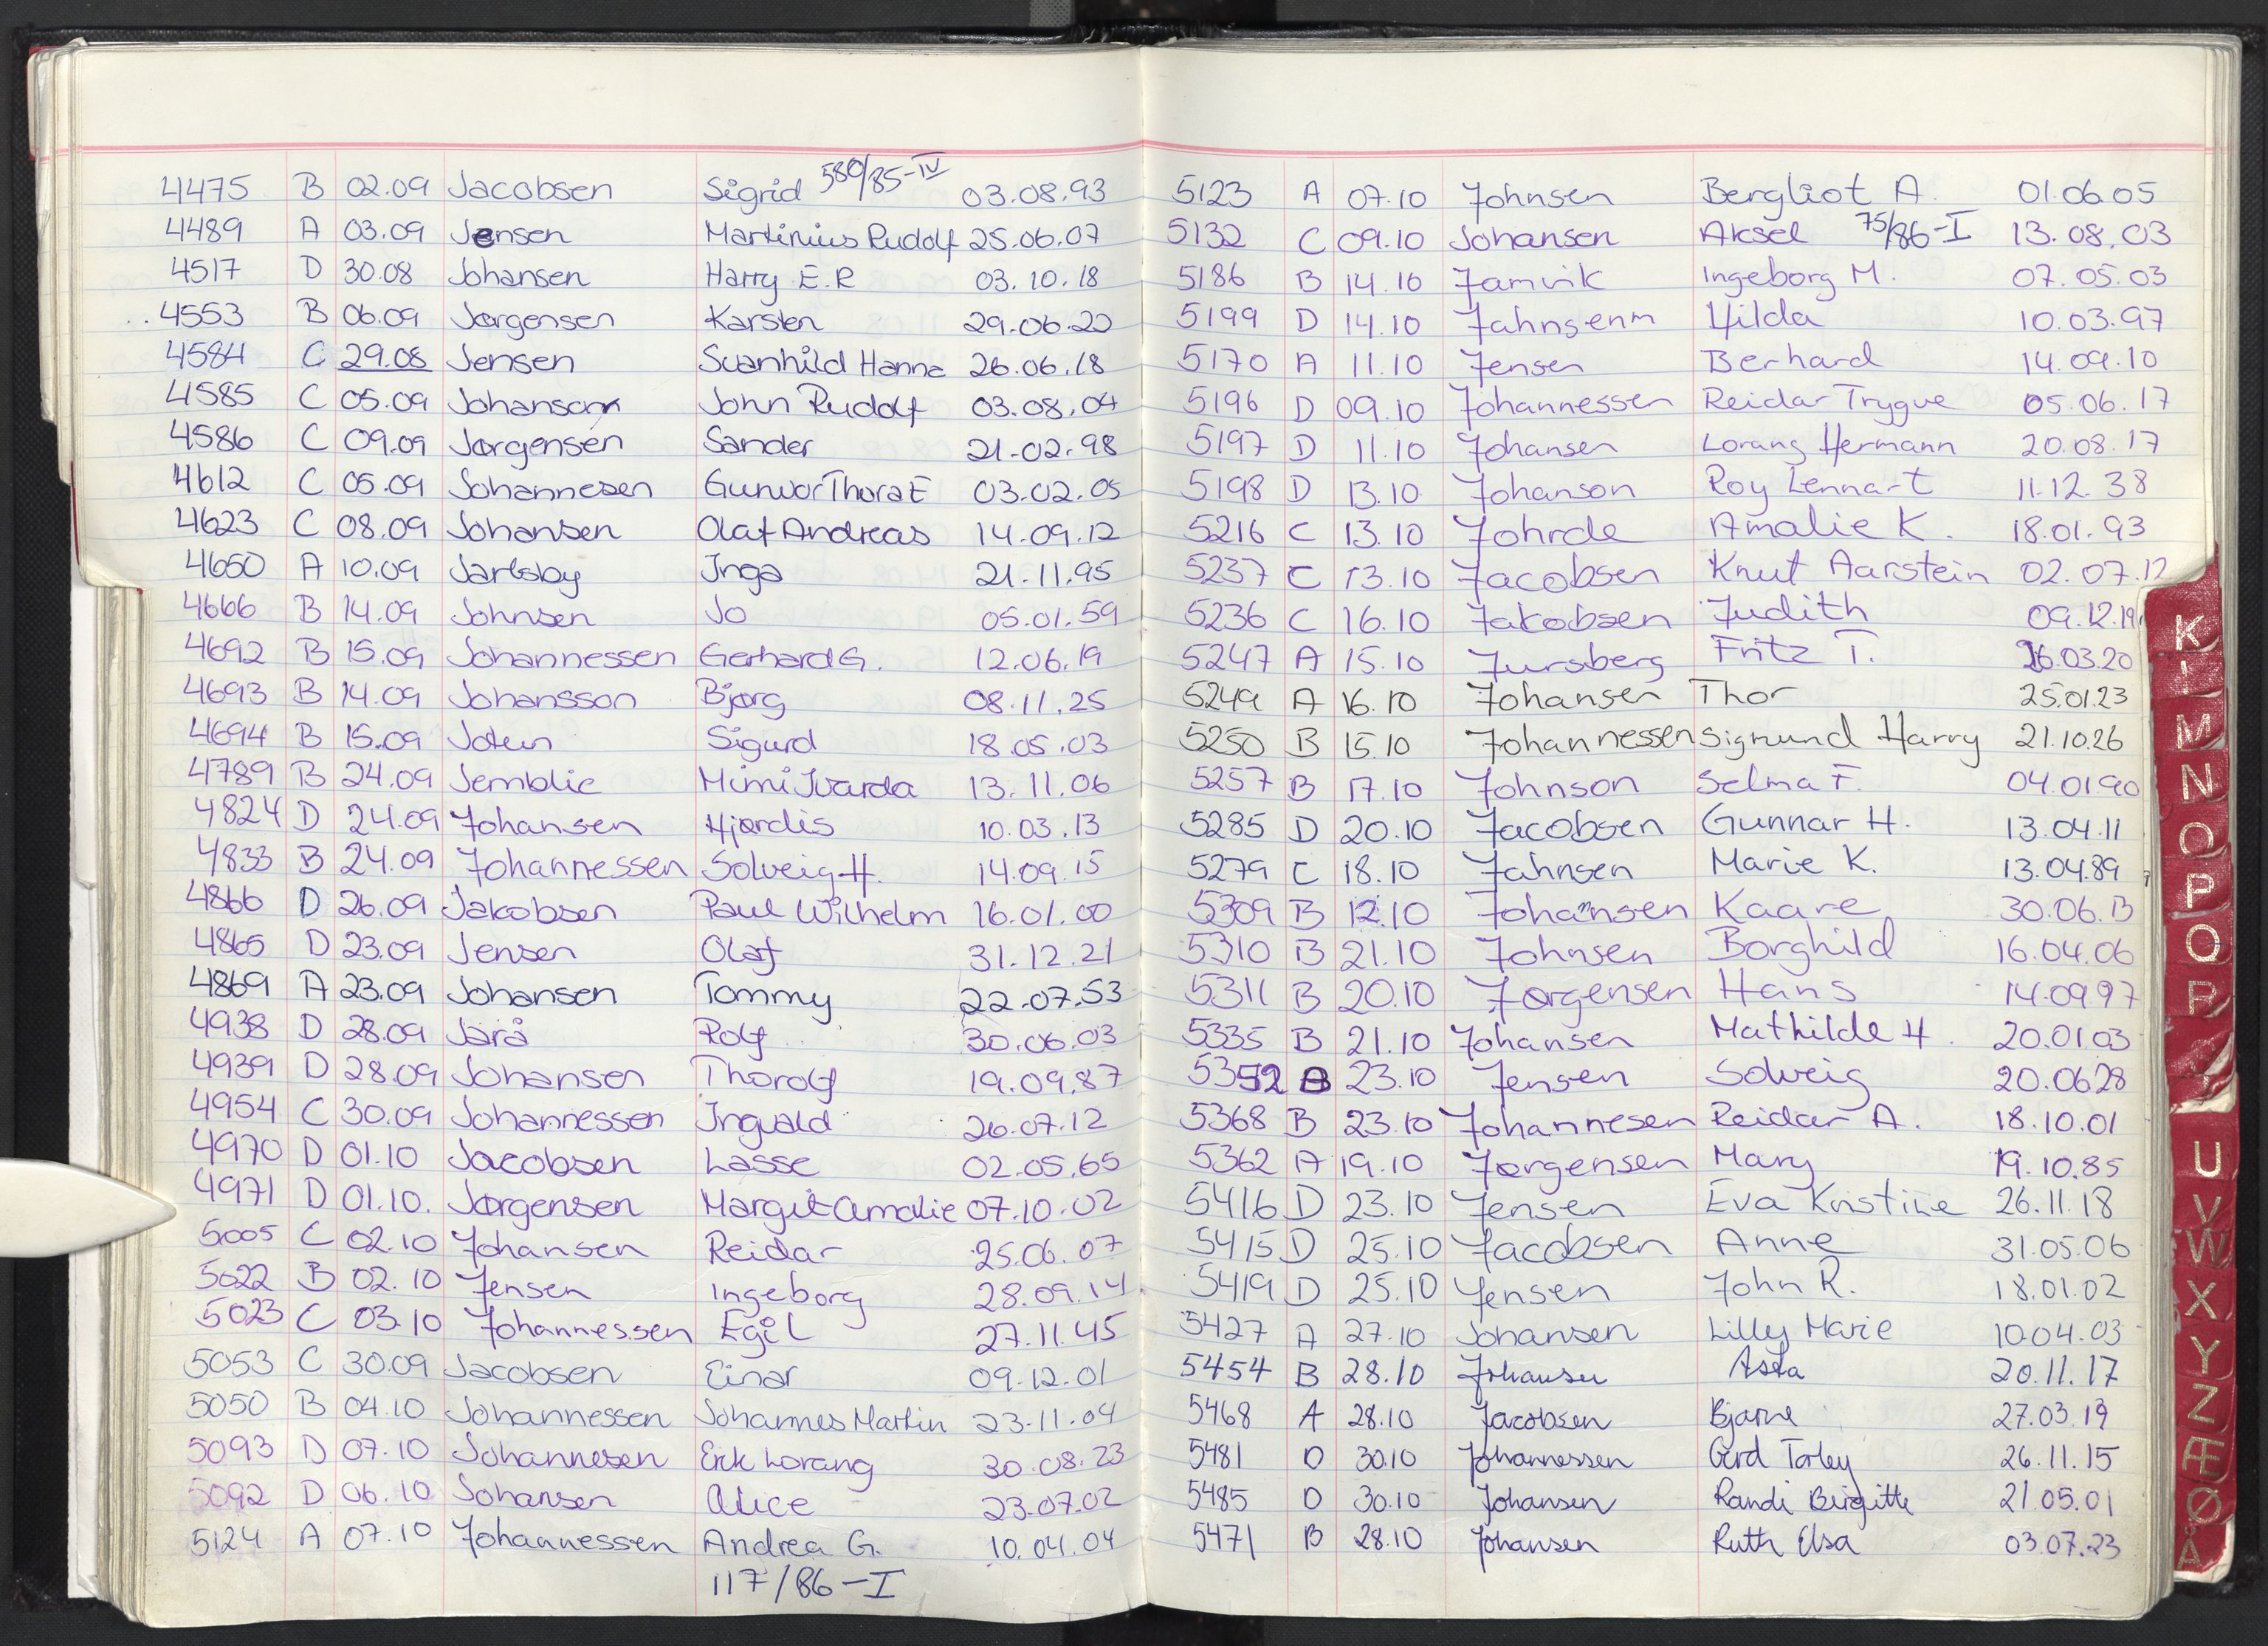 4475 B 02.09 Jacobsen Sigrid 580/85-IV 03.08.93
4489 A 03.09 Jensen Martinius Rudolf 25.06.07
4517 D 30.08 Johansen Harry E.R 03.10.18
4553 B 06.09 Jørgensen Karsten 29.06.20
4584 C 29.08 Jensen Svanhild Hanna 26.06.18
4585 C 05.09 Johanson John Rudolf 03.08.04
4586 C 09.09 Jørgensen Sander 21.02.98
4612 C 05.09 Johannesen Gunvor Thora E 03.02.05
4623 C 08.09 Johansen Olaf Andreas 14.09.12
4650 A 10.09 Jarlsby Inga 21.11.95
4666 B 14.09 Johnsen Jo 05.01.59
4692 B 15.09 Johannessen Gerhard G. 12.06.19
4693 B 14.09 Johansson Bjørg 08.11.25
4694 B 15.09 Sigurd 18.05.03
4789 B 24.09 Jemblie Mimi Ivarda 13.11.06
4824 D 24.09 Johansen Hjørdis 10.03.13
4833 B 24.09 Johannessen Solveig H. 14.09.15
4866 D 26.09 Jakobsen Paul Wilhelm 16.01.00
4865 D 23.09 Jensen Olaf 31.12.21
4869 A 23.09 Johansen Tommy 22.07.53
4938 D 28.09 Jarå Rolf 30.06.03
4939 D 28.09 Johansen Thorolf 19.09.87
4954 C 30.09 Johannessen Ingvald 26.07.12
4970 D 01.10 Jacobsen Lasse 02.05.65
4971 D 01.10. Jørgensen Margit Amalie 07.10.02
5005 C 02.10 Johansen Reidar 25.06.07
5022 B 02.10 Jensen Ingeborg 28.09.14
5023 C 03.10 Johannessen Egil 27.11.45
5053 C 30.09 Jacobsen Einar 09.12.01
5050 B 04.10 Johannessen Johannes Martin 23.11.04
5093 D 07.10 Johannesen Erik Lorang 30.08.23
5092 D 06.10 Johansen Alice 23.07.02
5124 A 07.10 Johannessen Andrea G. 10.04.04
117/86-I
5123 A 07.10 Johnsen Bergliot A. 01.06.05
5132 C 09.10 Johansen Aksel 75/86-I 13.08.03
5186 B 14.10 Jamvik Ingeborg M. 07.05.03
5199 D 14.10 Jahnsenm Hilda 10.03.97
5170 A 11.10 Jensen Berhard 14.09.10
5196 D 09.10 Johannessen Reidar Trygve 05.06.17
5197 D 11.10 Johansen Lorang Hermann 20.08.17
5198 D 13.10 Johanson Roy Lennart 11.12.38
5216 C 13.10 Johrde Amalie K. 18.01.93
5237 C 13.10 Jacobsen Knut Aarstein 02.07.12
5236 C 16.10 Jakobsen Judith 09.12.19
5247 A 15.10 Jursberg Fritz T. 26.03.20
5249 A 16.10 Johansen Thor 25.01.23
5250 B 15.10 Johannessen Sigmund Harry 21.10.26
5257 B 17.10 Johnson Selma F. 04.01.90
5285 D 20.10 Jacobsen Gunnar H. 13.04.11
5279 C 18.10 Jahnsen Marie K. 13.04.89
5309 B 12.10 Johansen Kaare 30.06.13
5310 B 21.10 Johnsen Borghild 16.04.06
5311 B 20.10 Jørgensen Hans 14.09.97
5335 B 21.10 Johansen Mathilde H. 20.01.03
5352 B 23.10 Jensen Solveig 20.06.28
5368 B 23.10 Johannesen Reidar A. 18.10.01
5362 A 19.10 Jørgensen Mary 19.10.85
5416 D 23.10 Jensen Eva Kristine 26.11.18
5415 D 25.10 Jacobsen Anne 31.05.06
5419 D 25.10 Jensen John R. 18.01.02
5427 A 27.10 Johansen Lilly Marie 10.04.03
5454 B 28.10 Johansen Asta 20.11.17
5468 A 28.10 Jacobsen Bjarne 27.03.19
5481 D 30.10 Johannessen Gerd Torley 26.11.15
5485 D 30.10 Johansen Randi Birgitte 21.05.01
5471 B 28.10 Johansen Ruth Elsa 03.07.23
K
L
M
N
O
P
Q
R
U
V
W
X
Y
Z
Æ
Ø
Å